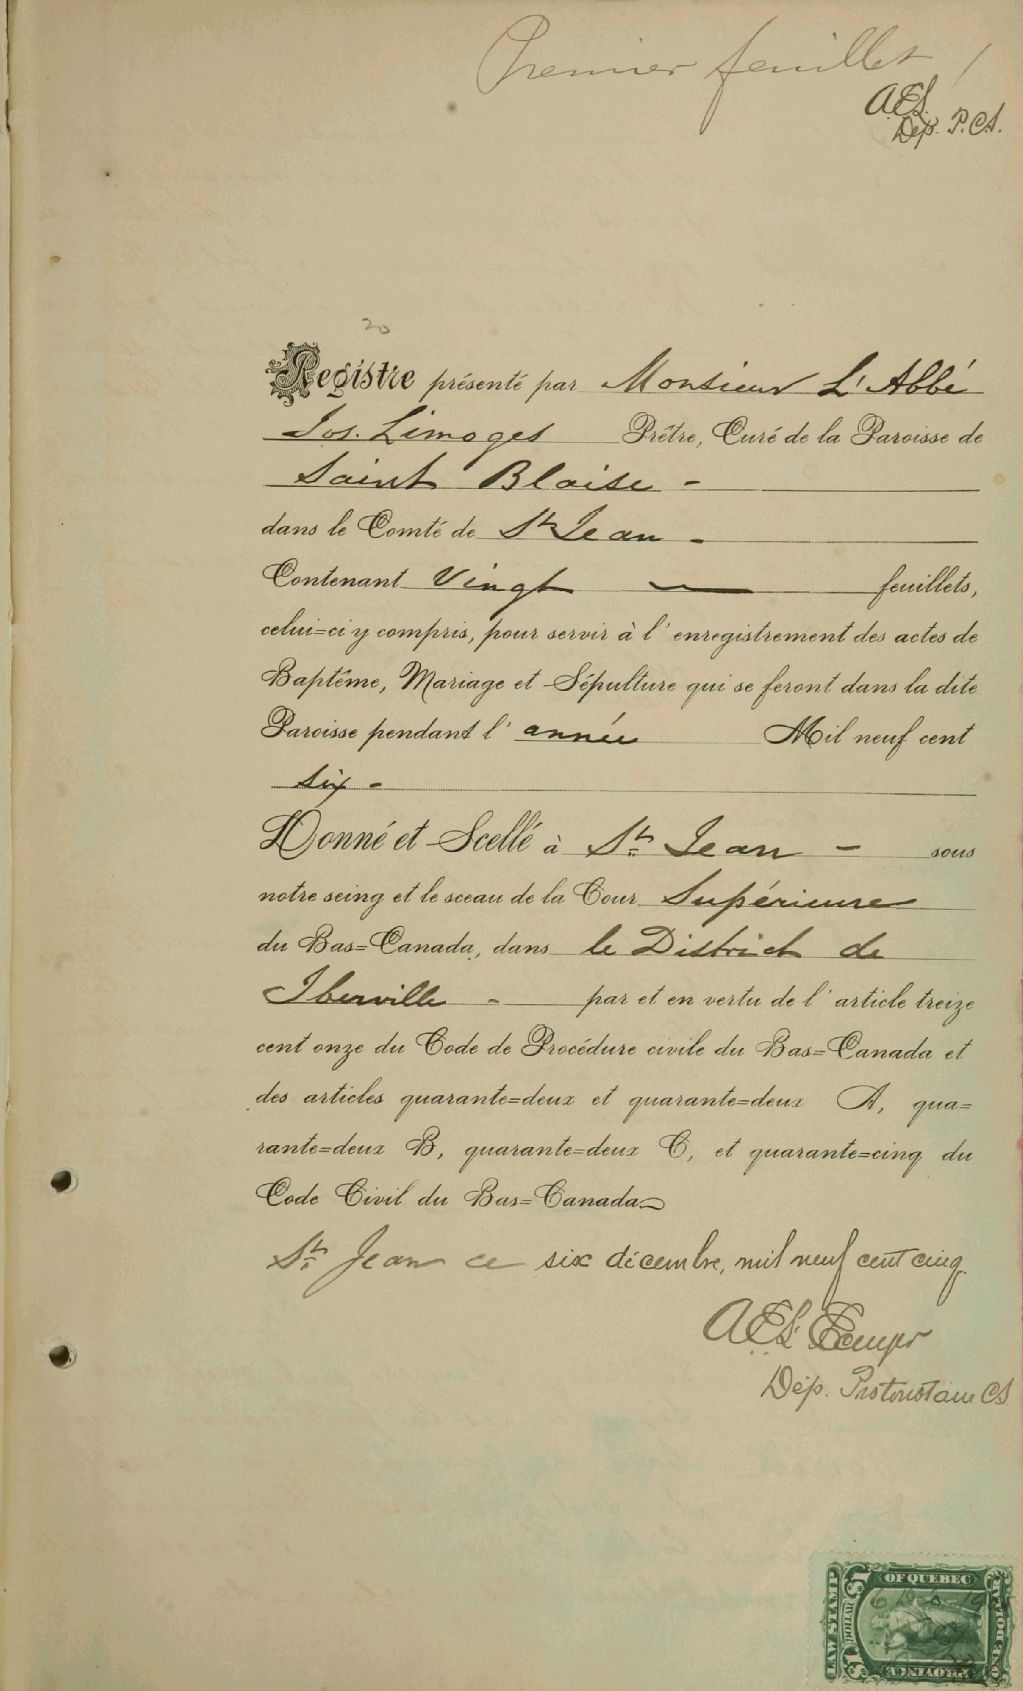 Premier feuillet /
A.E.S.
Dép. P.C.S.
20
Registre présenté par Monsieur L'Abbé
Jos. Limoges Prêtre, Curé de la Paroisse de
Saint Blaise -
dans le Comté de St Jean -
Contenant Vingt — feuillets,
celui=ci y compris, pour servir à l'enregistrement des actes de
Baptême, Mariage et Sépulture qui se feront dans la dite
Paroisse pendant l'année Mil neuf cent
six -
Donné et Scellé à St Jean - sous
notre seing et le sceau de la Cour Supérieure
du Bas=Canada, dans le District de
Iberville - par et en vertu de l'article treize
cent onze du Code de Procédure civile du Bas=Canada et
des articles quarante=deux et quarante=deux A, qua=
rante=deux B, quarante=deux C, et quarante=cinq du
Code Civil du Bas=Canada
St Jean ce six décembre, mil neuf cent cinq.
Dép. Protonotaire CS
OF QUEBEC
LAW STAMP
$1
DOLLAR
ONE DOLLAR
$1
PROVINCE